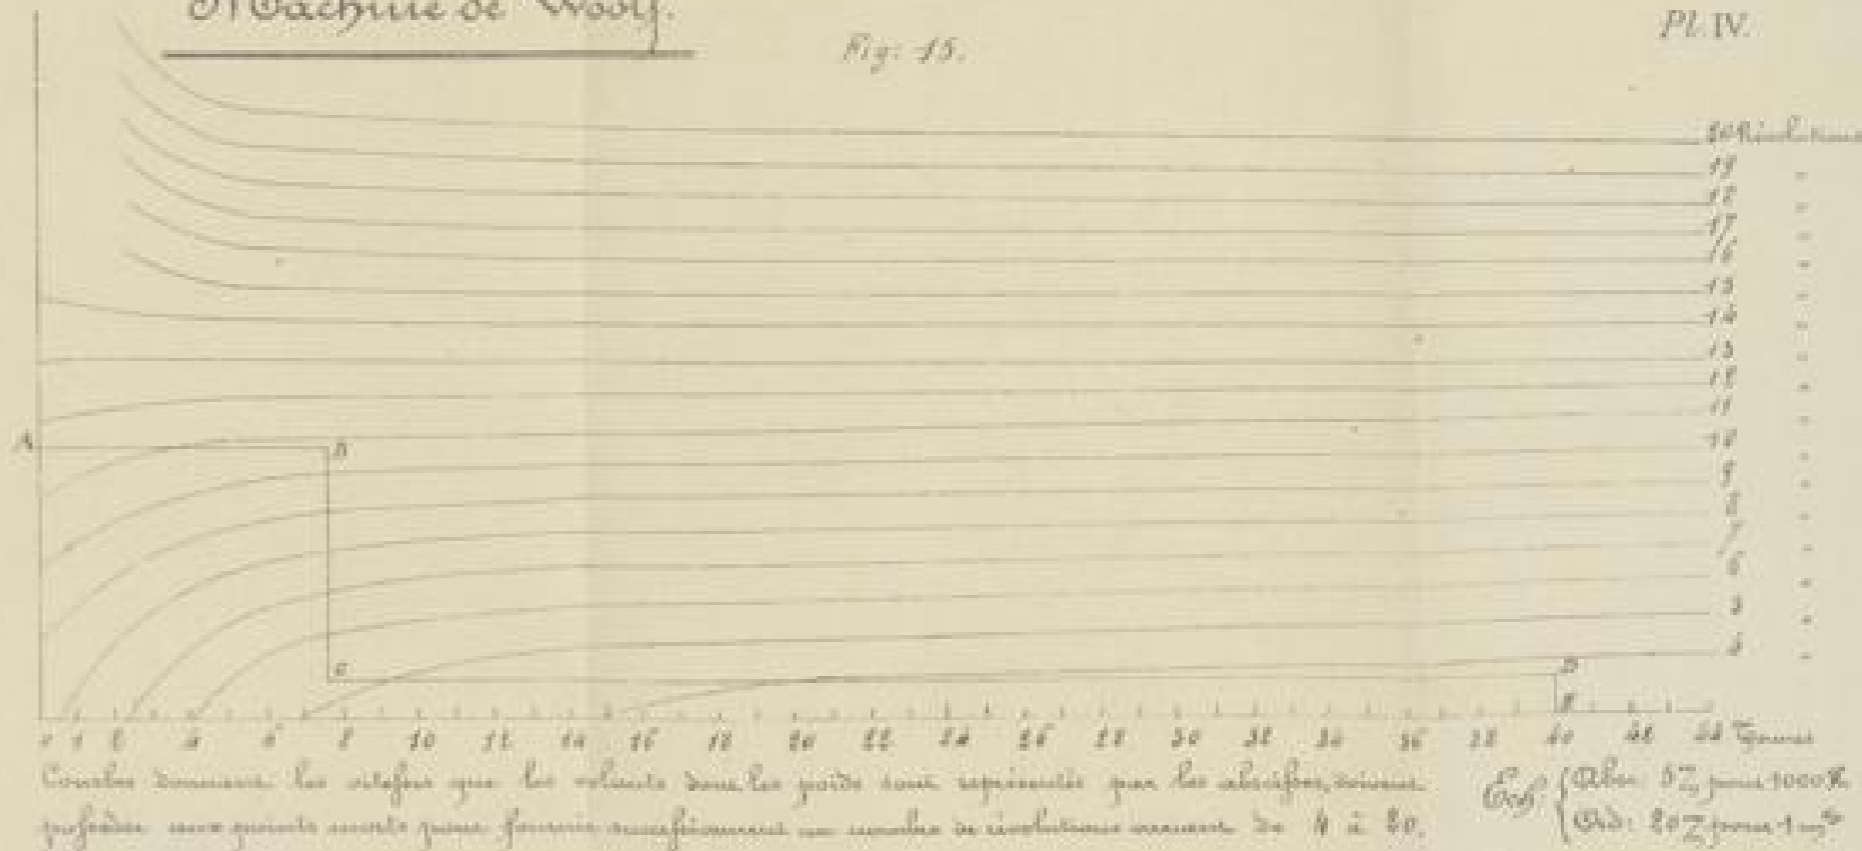 Machine de Woolf.
Fig: 15.
Pl. IV.
20 Révolutions
19 "
18 "
17 "
16 "
15 "
14 "
13 "
12 "
11 "
10 "
9 "
8 "
7 "
6 "
5 "
4 "
A
B
C
D
E
0 1 2 4 6 8 10 12 14 16 18 20 22 24 26 28 30 32 34 36 38 40 42 44 Tonnes
Courbes donnant les vitesses que les volants dont les poids sont représentés par les abscisses, doivent
posséder aux points morts pour fournir successivement un nombre de révolutions variant de 4 à 20.
Ech: { Absc: 5 % pour 1000 K
Ord: 20 % pour 1 m